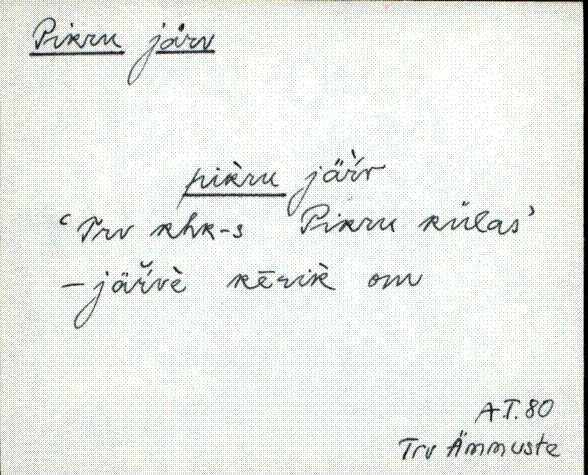 Pikru järv
pikru jär̀v
‘Trv khk-s Pikru külas’
– jär̆vè kērik̀ om
A.T. 80
Trv Ämmuste